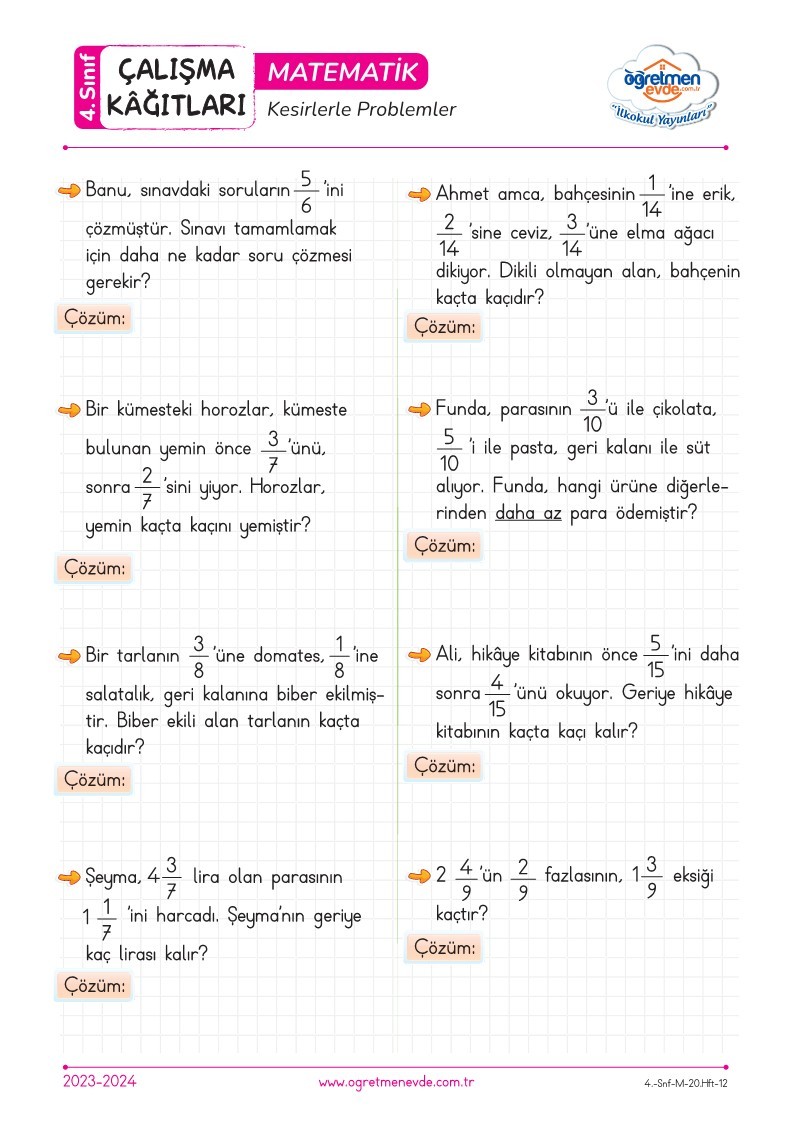 4. Sınıf
ÇALIŞMA
KÂĞITLARI
MATEMATİK
Kesirlerle Problemler
öğretmen
evde.com.tr
“İlkokul Yayınları”
Banu, sınavdaki soruların 5/6 'ini
çözmüştür. Sınavı tamamlamak
için daha ne kadar soru çözmesi
gerekir?
Çözüm:
Bir kümesteki horozlar, kümeste
bulunan yemin önce 3/7 'ünü,
sonra 2/7 'sini yiyor. Horozlar,
yemin kaçta kaçını yemiştir?
Çözüm:
Bir tarlanın 3/8 'üne domates, 1/8 'ine
salatalık, geri kalanına biber ekilmiş-
tir. Biber ekili alan tarlanın kaçta
kaçıdır?
Çözüm:
Şeyma, 4 3/7 lira olan parasının
1 1/7 'ini harcadı. Şeyma'nın geriye
kaç lirası kalır?
Çözüm:
Ahmet amca, bahçesinin 1/14 'ine erik,
2/14 'sine ceviz, 3/14 'üne elma ağacı
dikiyor. Dikili olmayan alan, bahçenin
kaçta kaçıdır?
Çözüm:
Funda, parasının 3/10 'ü ile çikolata,
5/10 'i ile pasta, geri kalanı ile süt
alıyor. Funda, hangi ürüne diğerle-
rinden daha az para ödemiştir?
Çözüm:
Ali, hikâye kitabının önce 5/15 'ini daha
sonra 4/15 'ünü okuyor. Geriye hikâye
kitabının kaçta kaçı kalır?
Çözüm:
2 4/9 'ün 2/9 fazlasının, 1 3/9 eksiği
kaçtır?
Çözüm:
2023-2024
www.ogretmenevde.com.tr
4.-Snf-M-20.Hft-12